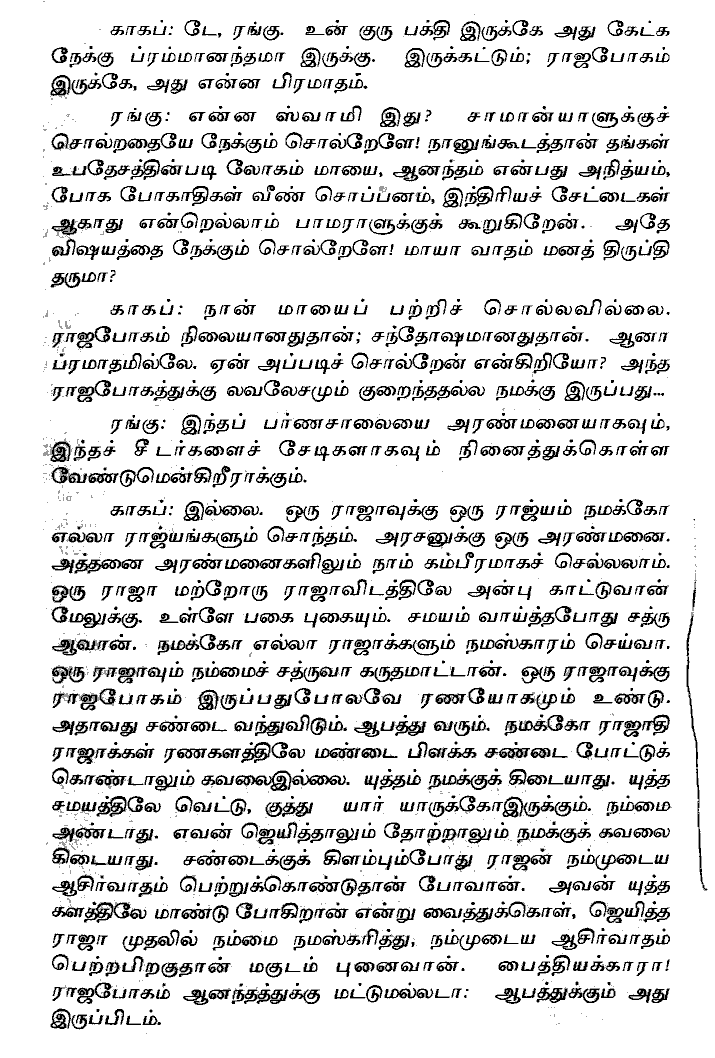 காகப்: டே, ரங்கு. உன் குரு பக்தி இருக்கே அது கேட்க
நேக்கு ப்ரம்மானந்தமா இருக்கு. இருக்கட்டும்; ராஜபோகம்
இருக்கே, அது என்ன பிரமாதம்.
ரங்கு: என்ன ஸ்வாமி இது? சாமான்யாளுக்குச்
சொல்றதையே நேக்கும் சொல்றேளே! நானுங்கூடத்தான் தங்கள்
உபதேசத்தின்படி லோகம் மாயை, ஆனந்தம் என்பது அநித்யம்,
போக போகாதிகள் வீண் சொப்பனம், இந்திரியச் சேட்டைகள்
ஆகாது என்றெல்லாம் பாமராளுக்குக் கூறுகிறேன். அதே
விஷயத்தை நேக்கும் சொல்றேளே! மாயா வாதம் மனத் திருப்தி
தருமா?
காகப்: நான் மாயைப் பற்றிச் சொல்லவில்லை.
ராஜபோகம் நிலையானதுதான்; சந்தோஷமானதுதான். ஆனா
ப்ரமாதமில்லே. ஏன் அப்படிச் சொல்றேன் என்கிறியோ? அந்த
ராஜபோகத்துக்கு லவலேசமும் குறைந்ததல்ல நமக்கு இருப்பது...
ரங்கு: இந்தப் பர்ணசாலையை அரண்மனையாகவும்,
இந்தச் சீடர்களைச் சேடிகளாகவும் நினைத்துக்கொள்ள
வேண்டுமென்கிறீராக்கும்.
காகப்: இல்லை. ஒரு ராஜாவுக்கு ஒரு ராஜ்யம் நமக்கோ
எல்லா ராஜ்யங்களும் சொந்தம். அரசனுக்கு ஒரு அரண்மனை.
அத்தனை அரண்மனைகளிலும் நாம் கம்பீரமாகச் செல்லலாம்.
ஒரு ராஜா மற்றோரு ராஜாவிடத்திலே அன்பு காட்டுவான்
மேலுக்கு. உள்ளே பகை புகையும். சமயம் வாய்த்தபோது சத்ரு
ஆவான். நமக்கோ எல்லா ராஜாக்களும் நமஸ்காரம் செய்வா.
ஒரு ராஜாவும் நம்மைச் சத்ருவா கருதமாட்டான். ஒரு ராஜாவுக்கு
ராஜபோகம் இருப்பதுபோலவே ரணயோகமும் உண்டு.
அதாவது சண்டை வந்துவிடும். ஆபத்து வரும். நமக்கோ ராஜாதி
ராஜாக்கள் ரணகளத்திலே மண்டை பிளக்க சண்டை போட்டுக்
கொண்டாலும் கவலைஇல்லை. யுத்தம் நமக்குக் கிடையாது. யுத்த
சமயத்திலே வெட்டு, குத்து யார் யாருக்கோஇருக்கும். நம்மை
அண்டாது. எவன் ஜெயித்தாலும் தோற்றாலும் நமக்குக் கவலை
கிடையாது. சண்டைக்குக் கிளம்பும்போது ராஜன் நம்முடைய
ஆசிர்வாதம் பெற்றுக்கொண்டுதான் போவான். அவன் யுத்த
களத்திலே மாண்டு போகிறான் என்று வைத்துக்கொள், ஜெயித்த
ராஜா முதலில் நம்மை நமஸ்கரித்து, நம்முடைய ஆசிர்வாதம்
பெற்றபிறகுதான் மகுடம் புனைவான். பைத்தியக்காரா!
ராஜபோகம் ஆனந்தத்துக்கு மட்டுமல்லடா: ஆபத்துக்கும் அது
இருப்பிடம்.